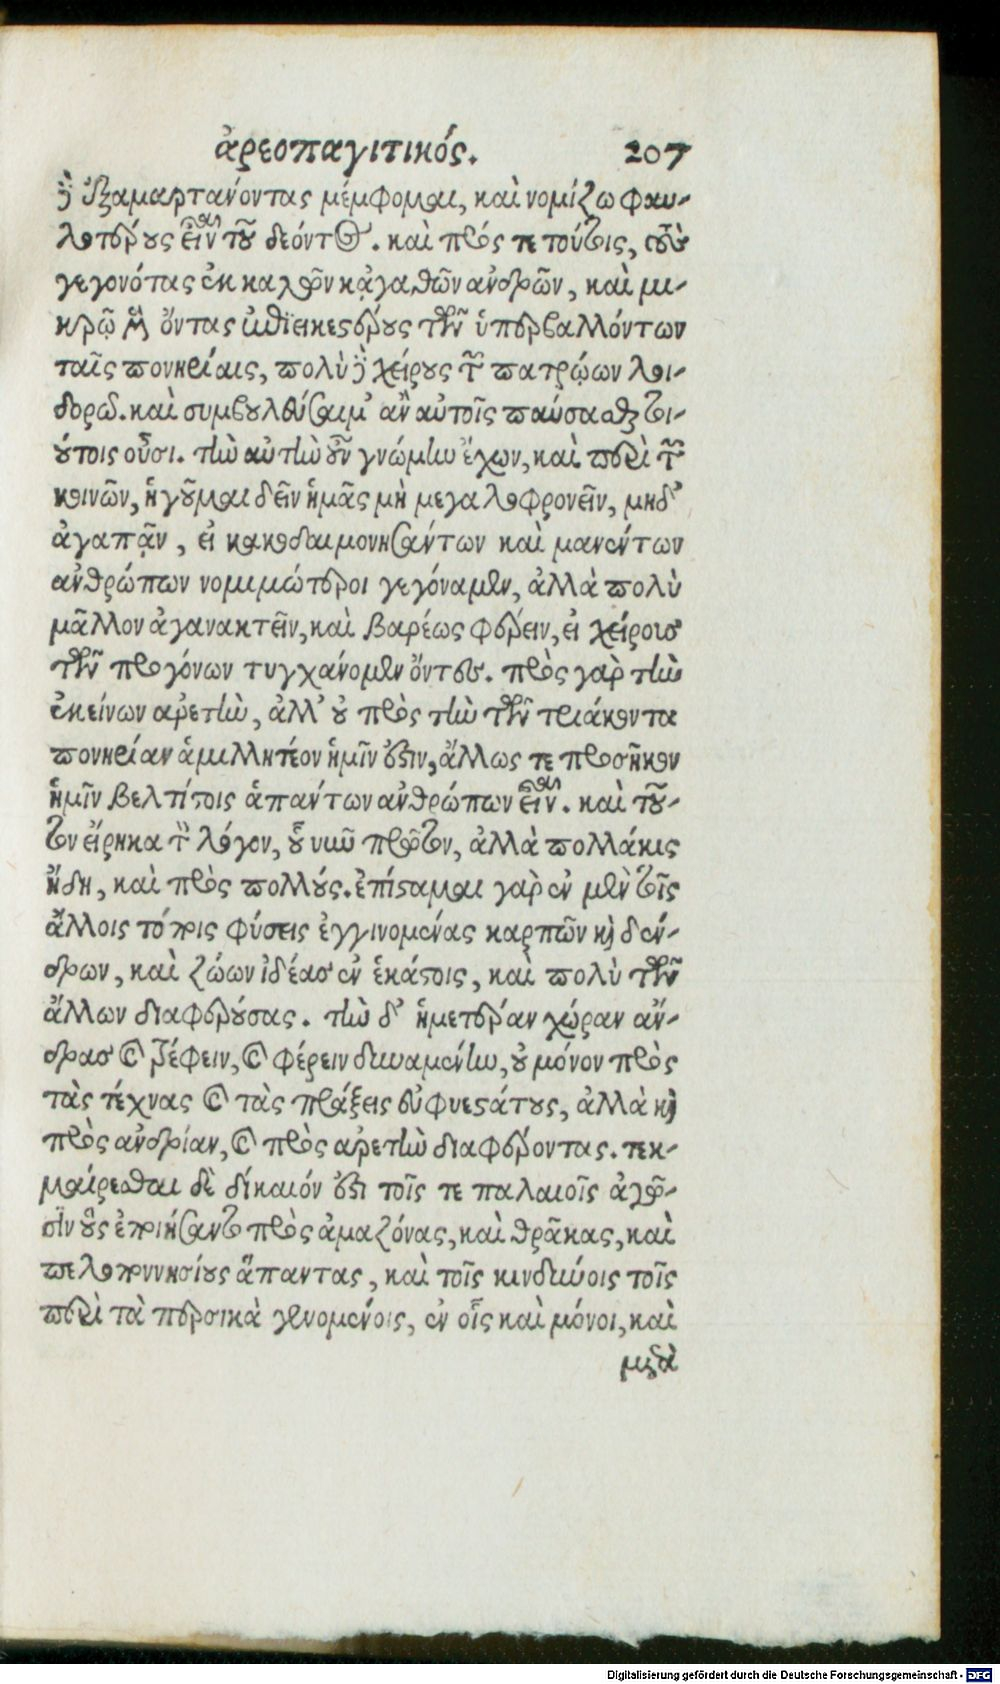 ἀρεοπαγιτικός. 207
δὲ ἐξαμαρτάνοντας μέμφομαι, καὶ νομίζω φαυ-
λοτέρους εἶναι τοῦ δέοντος. καὶ πρός τε τούτοις, τοὺς
γεγονότας ἐκ καλῶν κἀγαθῶν ἀνδρῶν, καὶ μι-
κρῷ μὲν ὄντας ἐπιεικεστέρους τῶν ὑπερβαλλόντων
ταῖς πονηρίαις, πολὺ δὲ χείρους τῶν πατρῴων λοι-
δορῶ. καὶ συμβουλεύσαιμ' ἂν αὐτοῖς παύσασθαι τοι-
ούτοις οὖσι. τὴν αὐτὴν οὖν γνώμην ἔχων, καὶ περὶ τῶν
κοινῶν, ἡγοῦμαι δεῖν ἡμᾶς μὴ μεγαλοφρονεῖν, μηδ'
ἀγαπᾷν, εἰ κακοδαιμονησάντων καὶ μανέντων
ἀνθρώπων νομιμώτεροι γεγόναμεν, ἀλλὰ πολὺ
μᾶλλον ἀγανακτεῖν, καὶ βαρέως φέρειν, εἰ χείρους
τῶν προγόνων τυγχάνομεν ὄντες. πρὸς γὰρ τὴν
ἐκείνων ἀρετὴν, ἀλλ' οὐ πρὸς τὴν τῶν τριάκοντα
πονηρίαν ἁμιλλητέον ἡμῖν ἐστιν, ἄλλως τε προσῆκον
ἡμῖν βελτίστοις ἁπάντων ἀνθρώπων εἶναι. καὶ τοῦ-
τον εἴρηκα τὸν λόγον, οὐ νῦν πρῶτον, ἀλλὰ πολλάκις
ἤδη, καὶ πρὸς πολλούς. ἐπίσταμαι γὰρ ἐν μὲν τοῖς
ἄλλοις τόποις φύσεις ἐγγινομένας καρπῶν καὶ δέν-
δρων, καὶ ζώων ἰδέας ἐν ἑκάστοις, καὶ πολὺ τῶν
ἄλλων διαφερούσας. τὴν δ' ἡμετέραν χώραν ἄν-
δρας καὶ τρέφειν, καὶ φέρειν δυναμένην, οὐ μόνον πρὸς
τὰς τέχνας καὶ τὰς πράξεις εὐφυεστάτους, ἀλλὰ καὶ
πρὸς ἀνδρίαν, καὶ πρὸς ἀρετὴν διαφέροντας. τεκ-
μαίρεσθαι δὲ δίκαιόν ἐστι τοῖς τε παλαιοῖς ἀγῶ-
σιν οὓς ἐποιήσαντο πρὸς ἀμαζόνας, καὶ θρᾷκας, καὶ
πελοποννησίους ἅπαντας, καὶ τοῖς κινδύνοις τοῖς
περὶ τὰ περσικὰ γενομένοις, ἐν οἷς καὶ μόνοι, καὶ
μετὰ
Digitalisierung gefördert durch die Deutsche Forschungsgemeinschaft - DFG